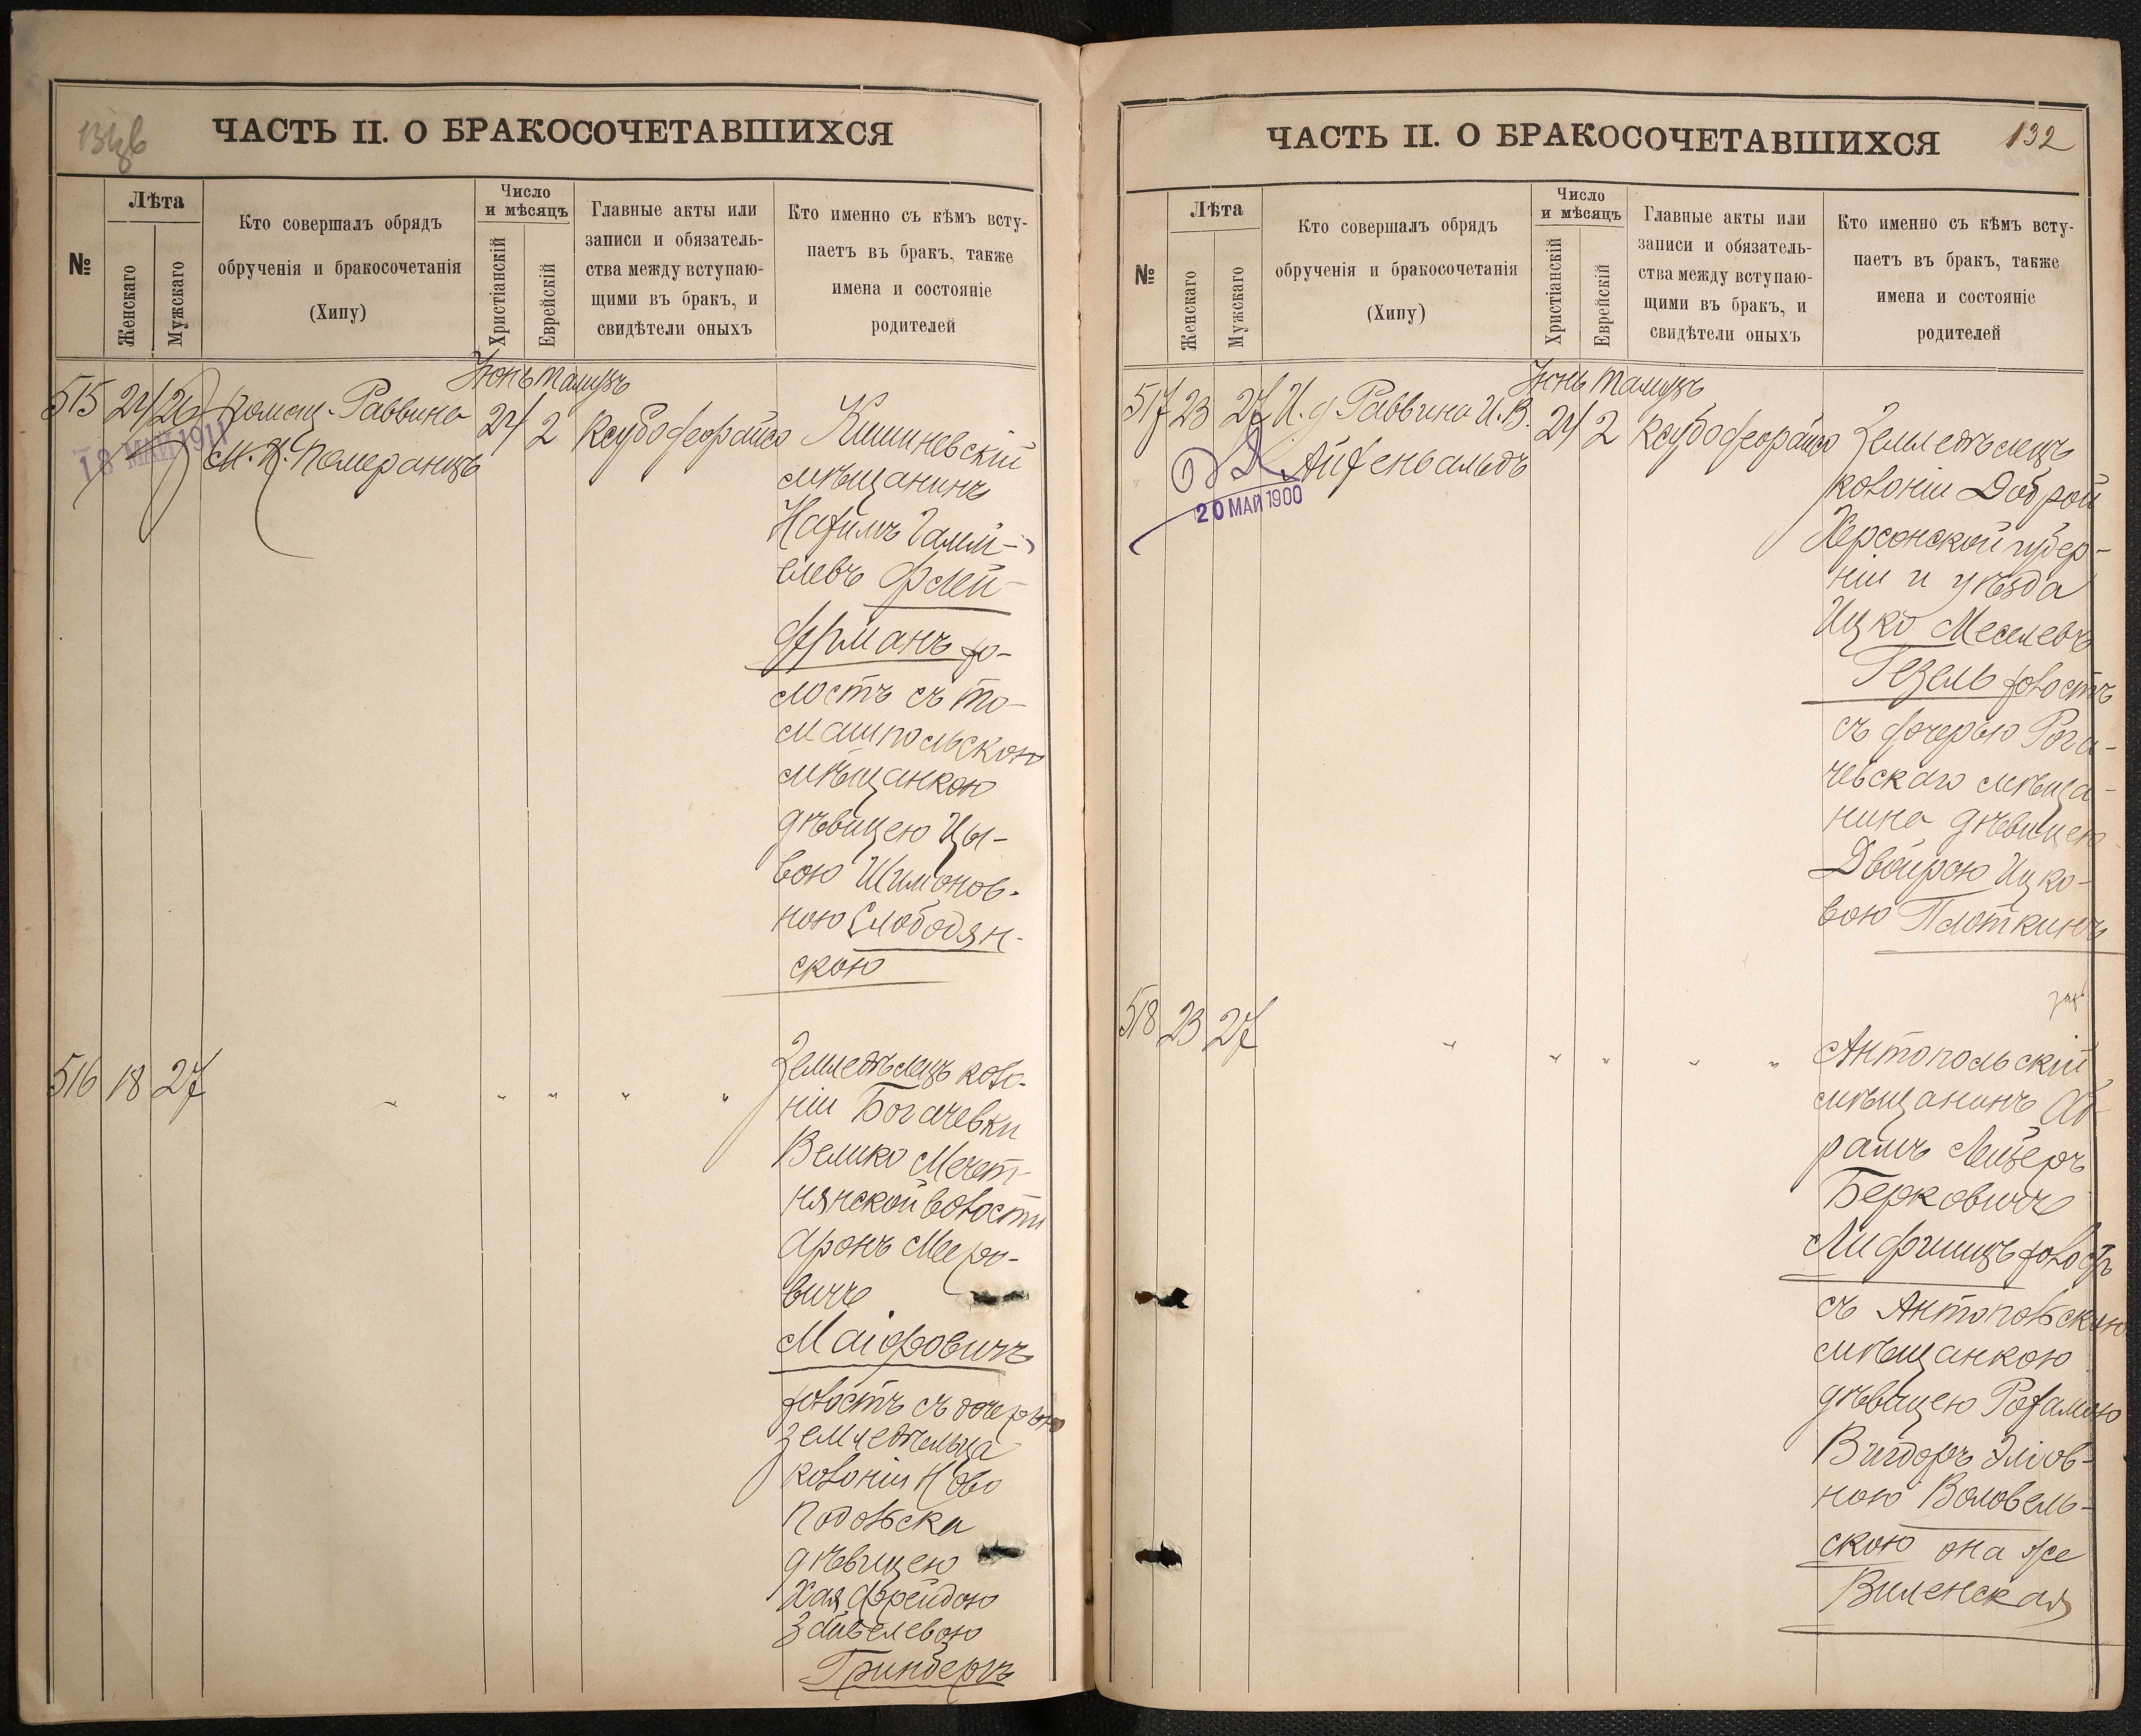 ЧАСТЬ II. О БРАКОСОЧЕТАВШИХСЯ
№
Лѣта
Женскаго
Мужскаго
Кто совершалъ обрядъ
обрученія и бракосочетанія
(Хипу)
Число
и мѣсяцъ
Христіанскій
Еврейскій
Главные акты или
записи и обязатель-
ства между вступаю-
щими въ бракъ, и
свидѣтели оныхъ
Кто именно съ кѣмъ всту-
паетъ въ бракъ, также
имена и состояніе
родителей
Іюнь Тамузъ
515 24 26 Помощ. Раввина
М. Н. Померанцъ
24 2
18 МАЙ 1911
Кишиневскій
мѣщанинъ
Нахимъ Гамши-
елевъ Флей-
ферманъ хо-
лостъ съ То-
машпольскою
мѣщанкою
дѣвицею Цы-
вою Шимонов-
ною Слободян-
скою
516 18 27 " " " " "
Земледѣлецъ коло-
ніи Богачевки
Велико Мечет-
нянской волости
Аронъ Меро-
вичъ
Маіофовичъ
холостъ съ дочерью
земледѣльца
колоніи Ново
Подольска
дѣвицею
Хая Фрейдою
Зайвелевою
Гринбергъ
ЧАСТЬ II. О БРАКОСОЧЕТАВШИХСЯ
132
№
Лѣта
Женскаго
Мужскаго
Кто совершалъ обрядъ
обрученія и бракосочетанія
(Хипу)
Число
и мѣсяцъ
Христіанскій
Еврейскій
Главные акты или
записи и обязатель-
ства между вступаю-
щими въ бракъ, и
свидѣтели оныхъ
Кто именно съ кѣмъ всту-
паетъ въ бракъ, также
имена и состояніе
родителей
Іюнь Тамузъ
517 23 27 И. д Раввина И. В.
Айхенвальдъ
24 2
20 МАЙ 1900
Земледѣлецъ
колоніи Доброй
Херсонской губер-
ніи и уѣзда
Ицко Меселевъ
Гезель холостъ
съ дочерью Рога-
чевскаго мѣща-
нина дѣвицею
Двойрою Ицко-
вою Плоткинъ
518 23 27 " " " " "
Антопольскій
мѣщанинъ Аб
рамъ Лейзеръ
Берковичъ
Лифшицъ холостъ
съ Антопольскою
мѣщанкою
дѣвицею Рохамою
Вигдоръ Эліов-
ною Воловель-
скою она же
Виленская